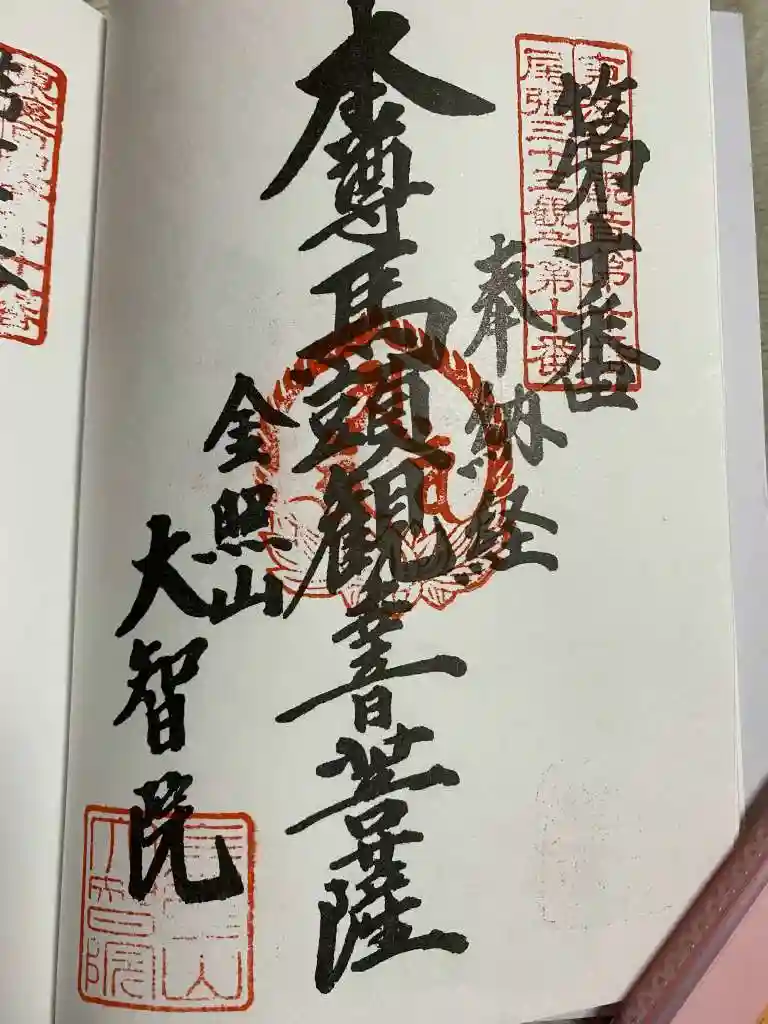 第十番
尾張三十三観音第十番
奉納経
本尊馬頭観音菩薩
金照山
大智院
大智院